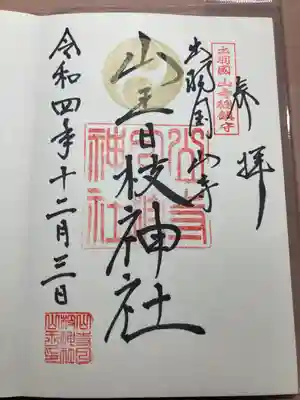 奉拝
出羽國山寺総鎮守
出羽國山寺
山王日枝神社
令和四年十二月三日